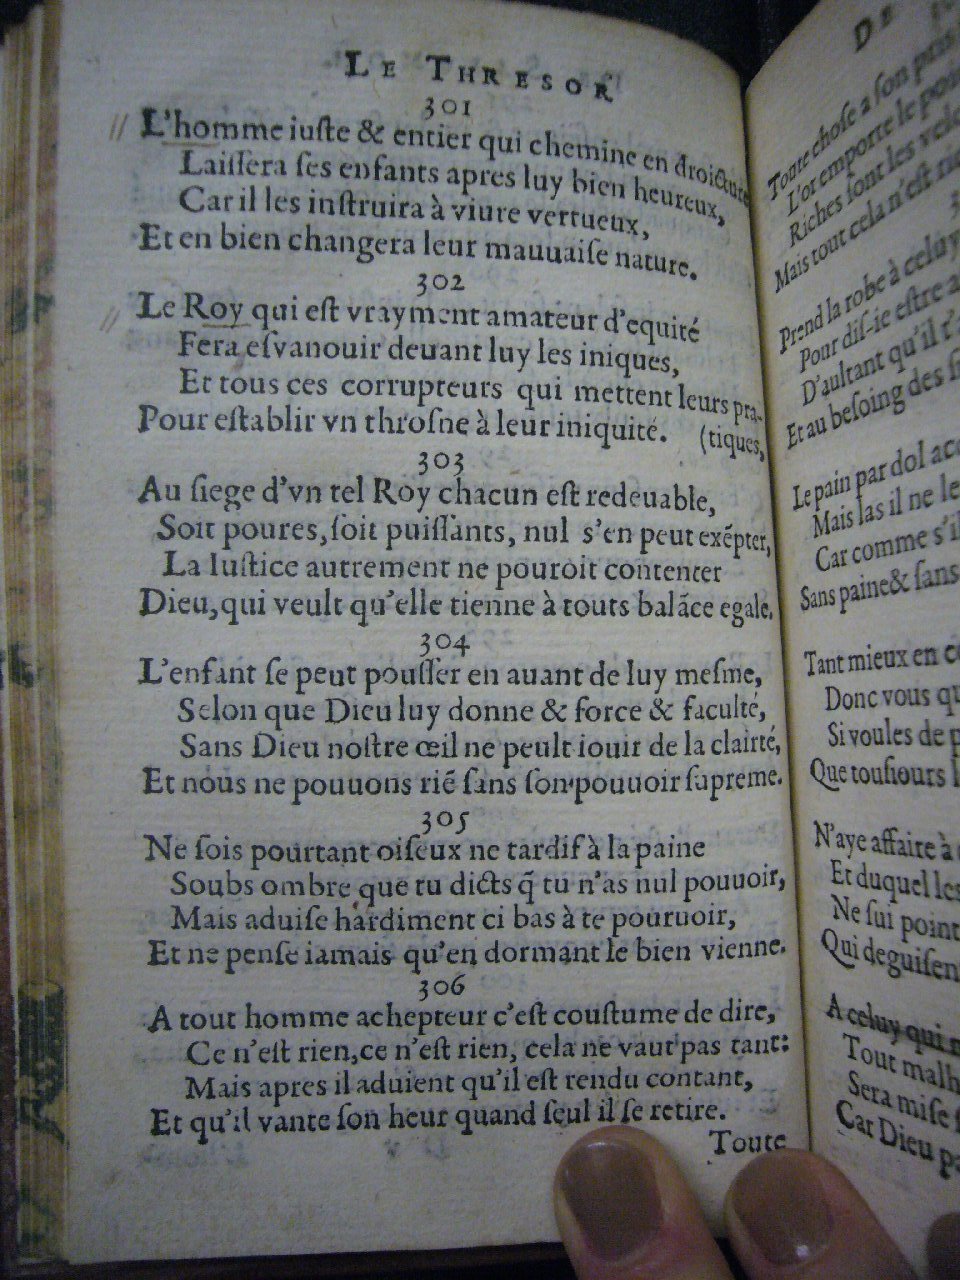 LE THRESOR
301
L'homme iuste & entier qui chemine en droicture
Laissera ses enfants apres luy bien heureux,
Car il les instruira à viure vertueux,
Et en bien changera leur mauuaise nature.
302
Le Roy qui est vrayment amateur d'equité
Fera esvanouir deuant luy les iniques,
Et tous ces corrupteurs qui mettent leurs pra-
Pour establir vn throsne à leur iniquité. (tiques,
303
Au siege d'vn tel Roy chacun est redeuable,
Soit poures, soit puissants, nul s'en peut exẽpter,
La Iustice autrement ne pouroit contenter
Dieu, qui veult qu'elle tienne à touts balãce egale.
304
L'enfant se peut pousser en auant de luy mesme,
Selon que Dieu luy donne & force & faculté,
Sans Dieu nostre œil ne peult iouir de la clairté,
Et nous ne pouuons riẽ sans son pouuoir supreme.
305
Ne sois pourtant oiseux ne tardif à la paine
Soubs ombre que tu dicts q̃ tu n'as nul pouuoir,
Mais aduise hardiment ci bas à te pouruoir,
Et ne pense iamais qu'en dormant le bien vienne.
306
A tout homme achepteur c'est coustume de dire,
Ce n'est rien, ce n'est rien, cela ne vaut pas tant:
Mais apres il aduient qu'il est rendu contant,
Et qu'il vante son heur quand seul il se retire.
Toute
DE
Toute chose a son
L'or emporte le
Riches sont les
Mais tout cela n'est
Prend la robe à celuy
Pour dis-ie estre
D'aultant qu'il t'
Et au besoing des
Le pain par dol
Mais las il ne le
Car comme s'il
Sans paine & sans
Tant mieux en
Donc vous
Si voules de
Que tousiours
N'aye affaire à
Et duquel les
Ne sui point
Qui deguisent
A celuy qui
Tout
Sera mise
Car Dieu